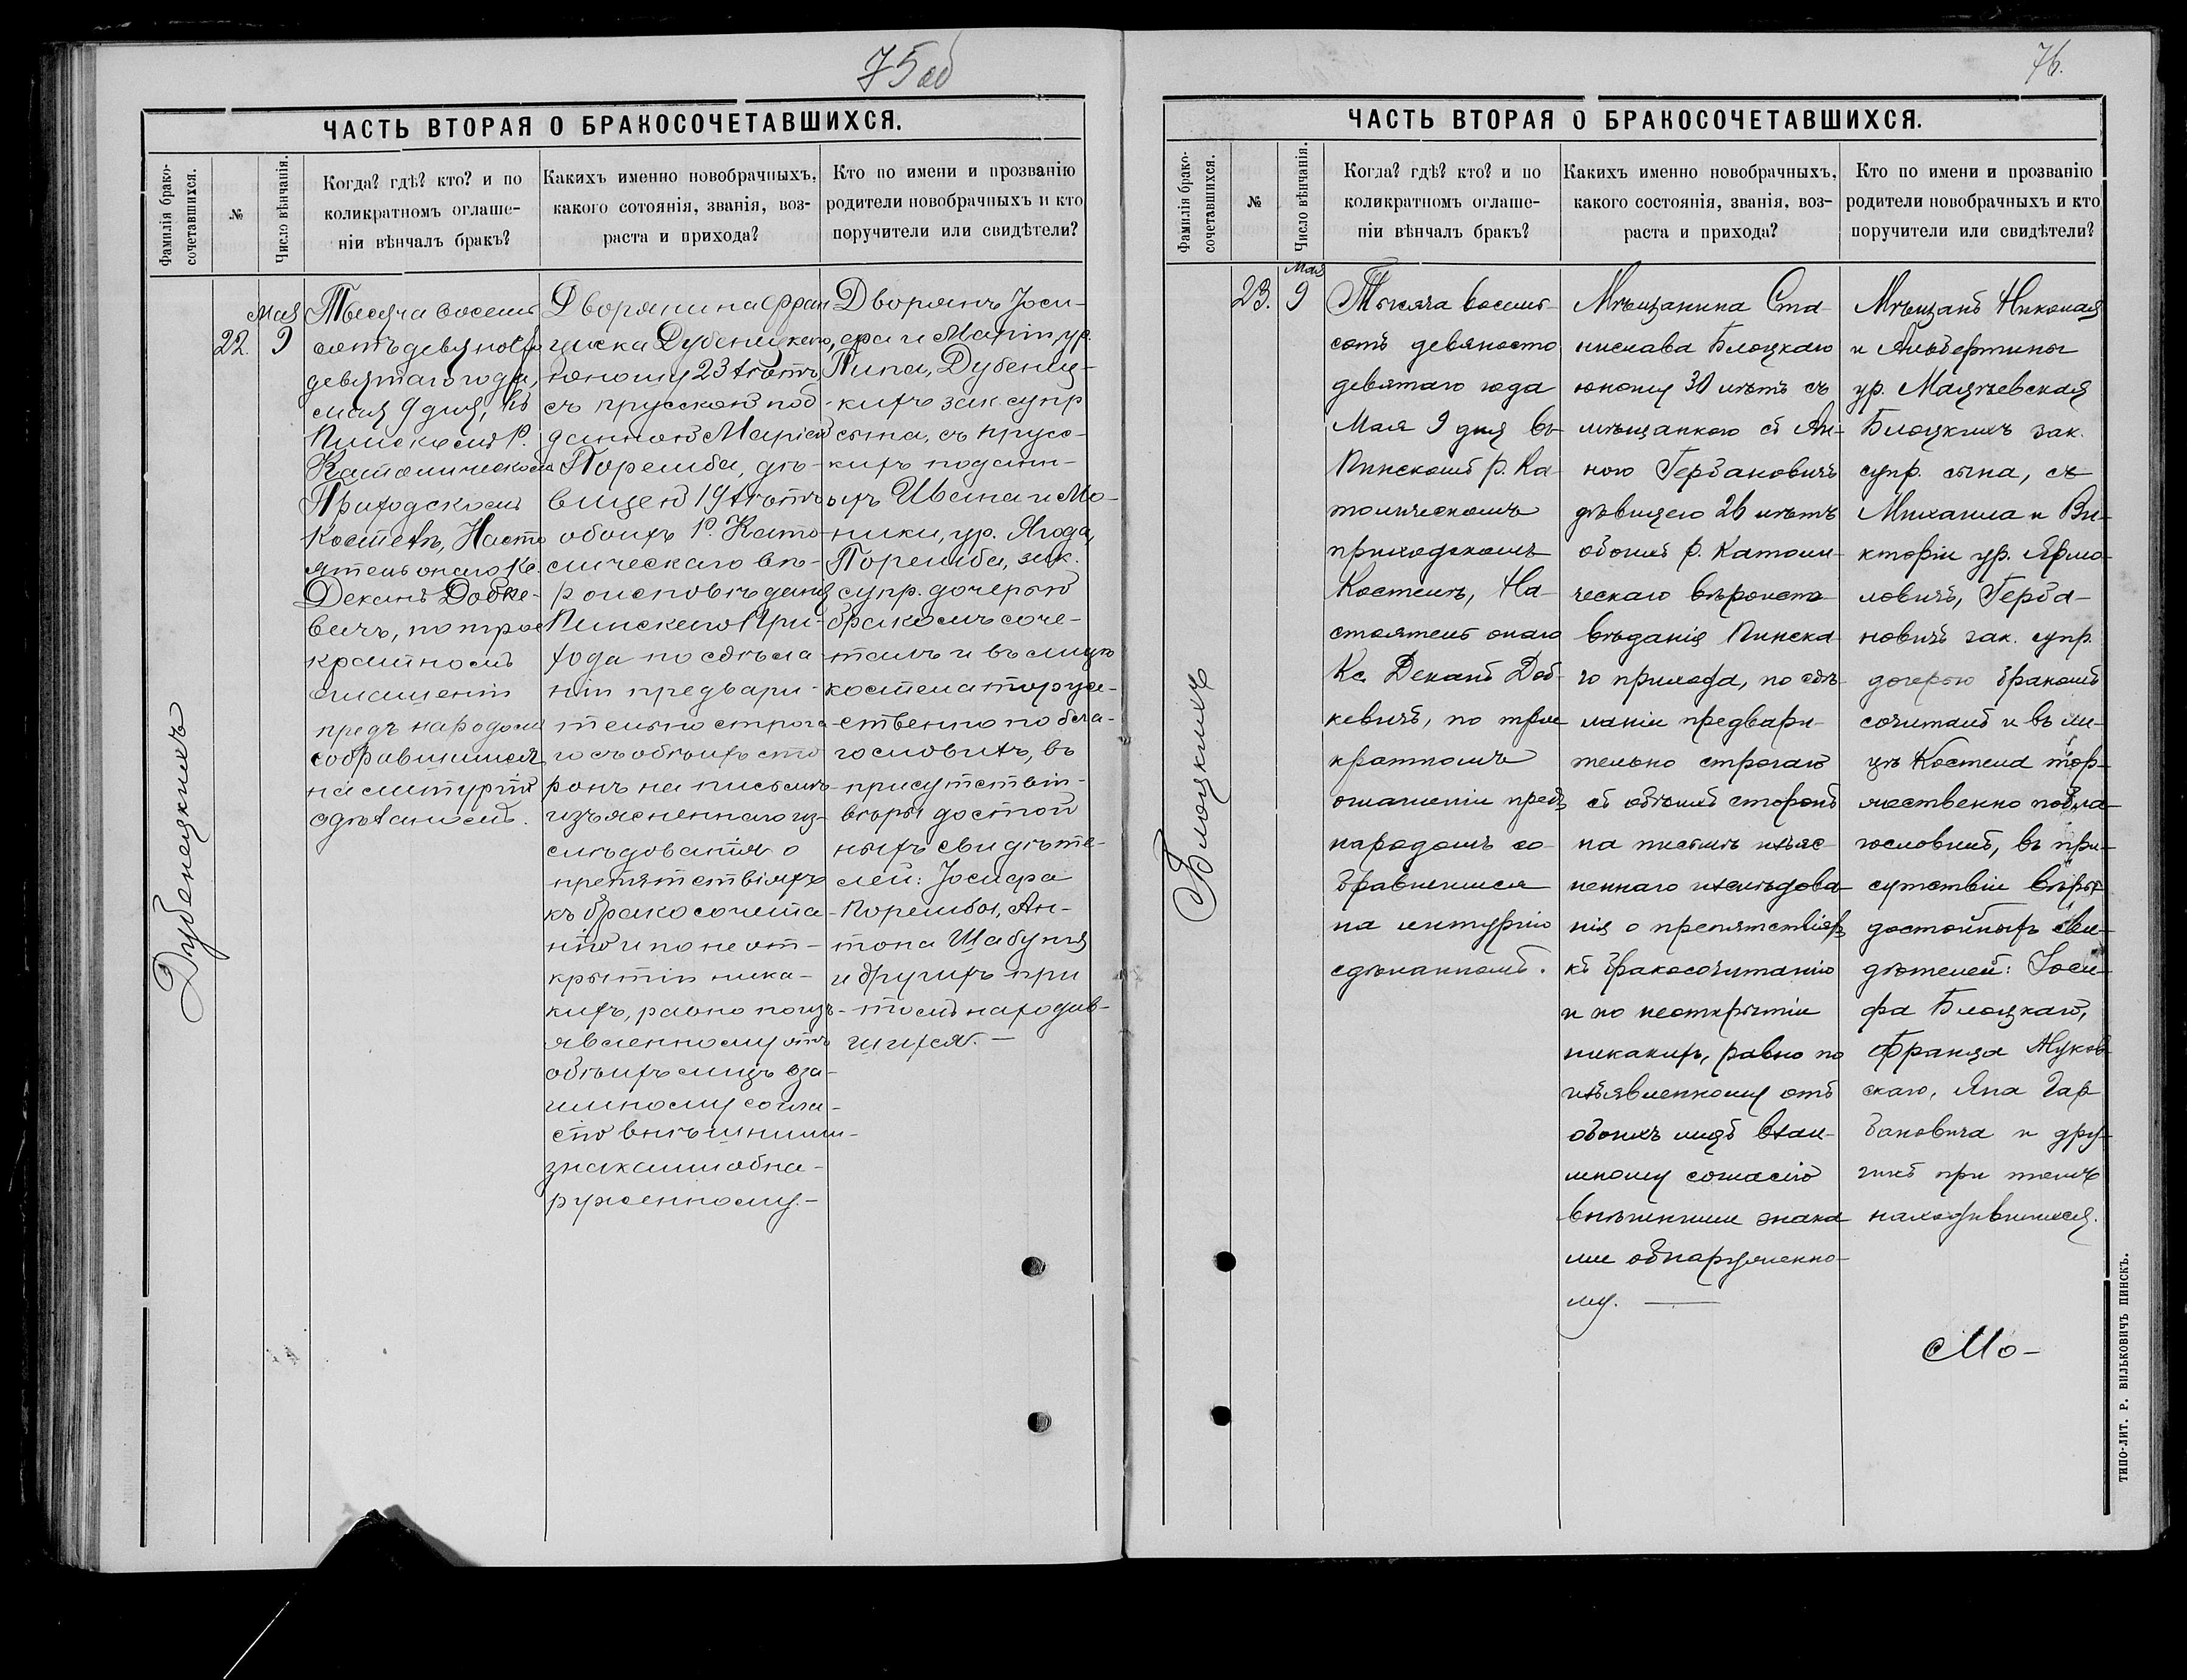 75 об
ЧАСТЬ ВТОРАЯ О БРАКОСОЧЕТАВШИХСЯ.
Фамилія брако-
сочетавшихся.
№
Число вѣнчанія.
Когда? гдѣ? кто? и по
коликратномъ оглаше-
ніи вѣнчалъ бракъ?
Какихъ именно новобрачныхъ,
какого сотоянія, званія, воз-
раста и прихода?
Кто по имени и прозванію
родители новобрачныхъ и кто
поручители или свидѣтели?
Дубенецкихъ
22.
Мая
9
Тысяча восемь
сотъ девяносто
девятаго года,
мая 9 дня, въ
Пинскомъ Р.
Католическомъ
Приходскомъ
Костелѣ, Насто
ятель онаго Кс.
Деканъ Добке-
вичъ, по трое
кратномъ
оглашеніи
предъ народомъ
собравшимся
на литургію
сдѣланномъ.
Дворянина Фран
циска Дубенецкаго,
юношу 23 лѣтъ,
съ прусскою под-
данною Маріею
Поремба, дѣ-
вицею 19 лѣтъ
обоихъ Р. Като-
лическаго вѣ-
роисповѣданія
Пинскаго При-
хода по сдѣла-
ніи предвари-
тельно строга
го съ обѣихъ сто
ронъ на письмѣ
изъясненнаго из-
слѣдованія о
препятствіяхъ
къ бракосочета-
нію и по неот-
крытіи ника-
кихъ, равно по изъ-
явленному отъ
обѣихъ лицъ вза-
имному согла-
сію внѣшними
знаками обна-
руженному.-
Дворянъ Іоси-
фа и Маріи, ур.
Липа, Дубенец-
кихъ зак. супр
сына, съ прусс-
кихъ поданн-
ыхъ Ивана и Мо-
ники, ур. Ягода,
Поремба, зак.
супр. дочерью
бракомъ соче-
талъ и въ лицѣ
костела торже-
ственно побла-
гословилъ, въ
присутствіи-
вѣры достой
ныхъ свидѣте-
лей: Іосифа
Порембы, Ан-
тона Шабуня
и другихъ при
томъ находив-
шихся. —
76.
ЧАСТЬ ВТОРАЯ О БРАКОСОЧЕТАВШИХСЯ.
Фамилія брако-
сочетавшихся.
№
Число вѣнчанія.
Когда? гдѣ? кто? и по
коликратномъ оглаше-
ніи вѣнчалъ бракъ?
Какихъ именно новобрачныхъ,
какого состоянія, званія, воз-
раста и прихода?
Кто по имени и прозванію
родители новобрачныхъ и кто
поручители или свидѣтели?
Блоцкихъ
23.
Мая
9
Тысяча восемь
сотъ девяносто
девятаго года
Мая 9 дня въ
Пинскомъ Р. Ка-
толическомъ
приходскомъ
Костелѣ, На-
стоятель онаго
Кс. Деканъ Доб-
кевичъ, по трое
кратномъ
оглашеніи предъ
народомъ со-
бравшимся
на литургію
сдѣланномъ.
Мѣщанина Ста-
нислава Блоцкаго
юношу 30 лѣтъ съ
мѣщанкою съ Ан-
ною Гербановичъ
дѣвицею 26 лѣтъ
обоихъ р. Католи-
ческаго вѣроиспо-
вѣданія Пинска-
го прихода, по сдѣ-
ланіи предвари-
тельно строгаго
съ обѣихъ сторонъ
на письмѣ изъяс-
неннаго изслѣдова-
нія о препятствіяхъ
къ бракосочитанію
и по неоткрытіи
никакихъ, равно по
изъявленному отъ
обоихъ лицъ взаи-
мному согласію
внѣшними знака
ми обнаруженно-
му. —
Мѣщанъ Николая
и Альбертины
ур. Мацѣевская
Блоцкихъ зак.
супр. сына, съ
Михаила и Ви-
кторіи ур. Ярмо-
ловичъ, Герба-
новичъ зак. супр.
дочерью бракомъ
сочиталъ и въ ли-
цѣ Костела тор-
жественно побла-
гословилъ, въ при-
сутствіи вѣры
достойныхъ сви-
дѣтелей: Іоси-
фа Блоцкаго,
Франца Жуков
скаго, Яна Гар
бановича и дру-
гихъ при томъ
находившихся.
Мо-
ТИПО-ЛИТ. Р. ВИЛЬКОВИЧЪ ПИНСКЪ.